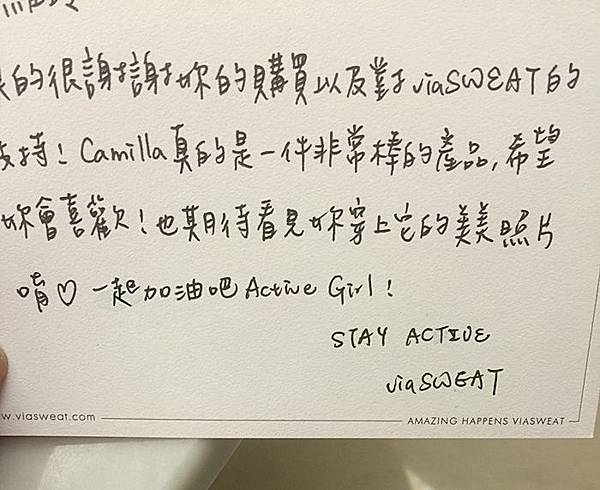 的很謝謝妳的購買以及對viaSWEAT的
支持！Camilla真的是一件非常棒的產品,希望
妳會喜歡！也期待看見妳穿上它的美美照片
唷♡ 一起加油吧Active Girl！
STAY ACTIVE
viaSWEAT
w.viasweat.com
AMAZING HAPPENS VIASWEAT